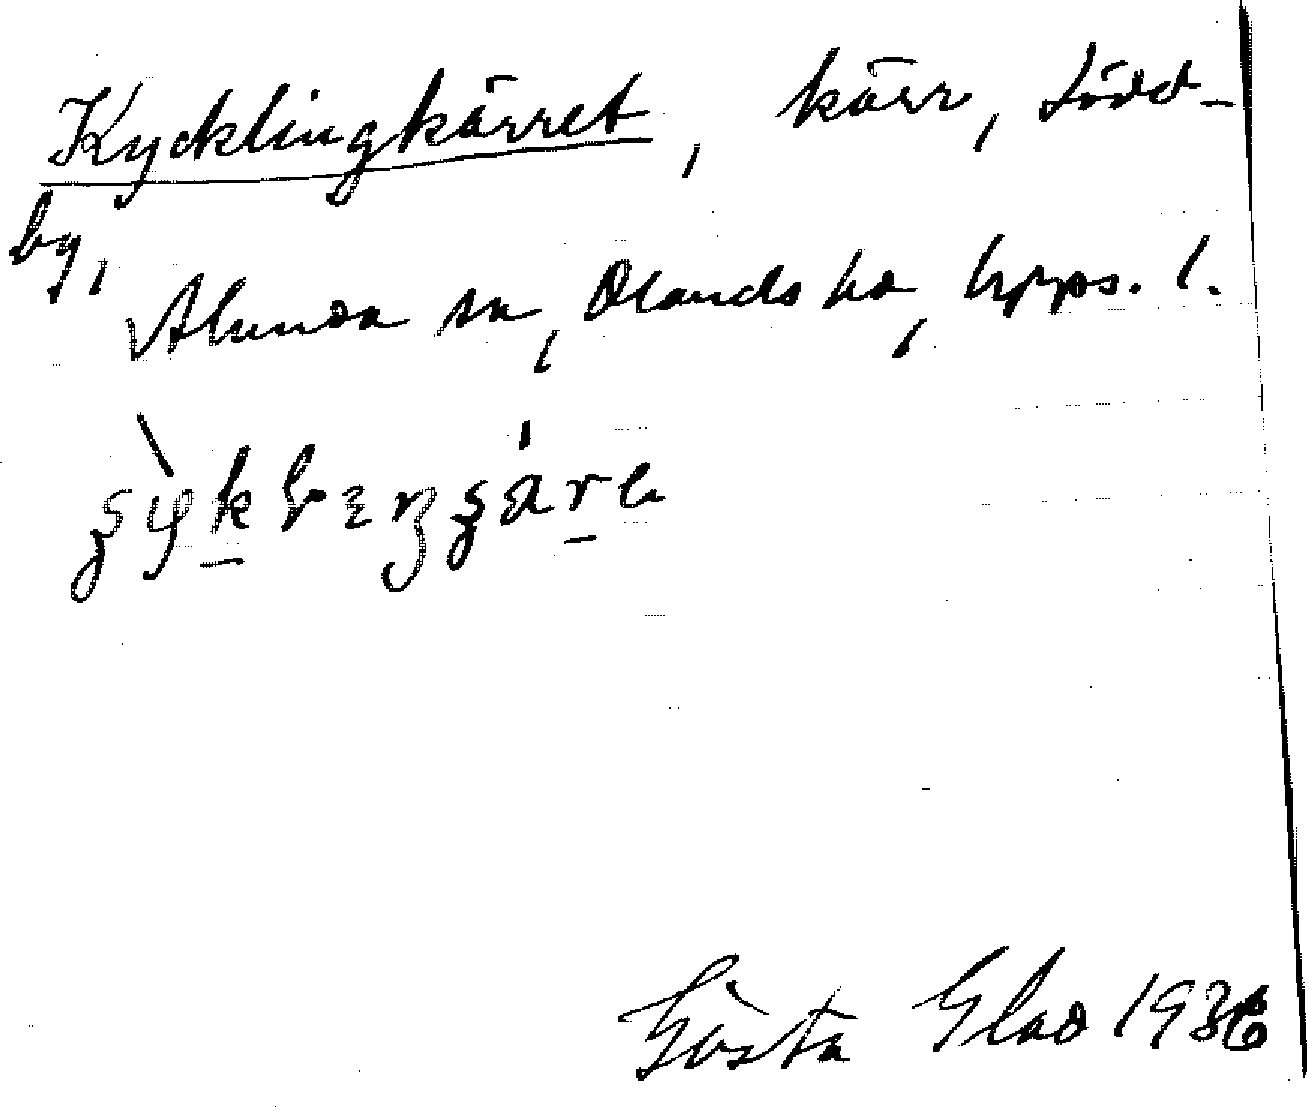 Kycklingkärret, kärr, Lödd-
by,
Alunda sn, Olands hd, Upps. l.
Gösta Glad 1936